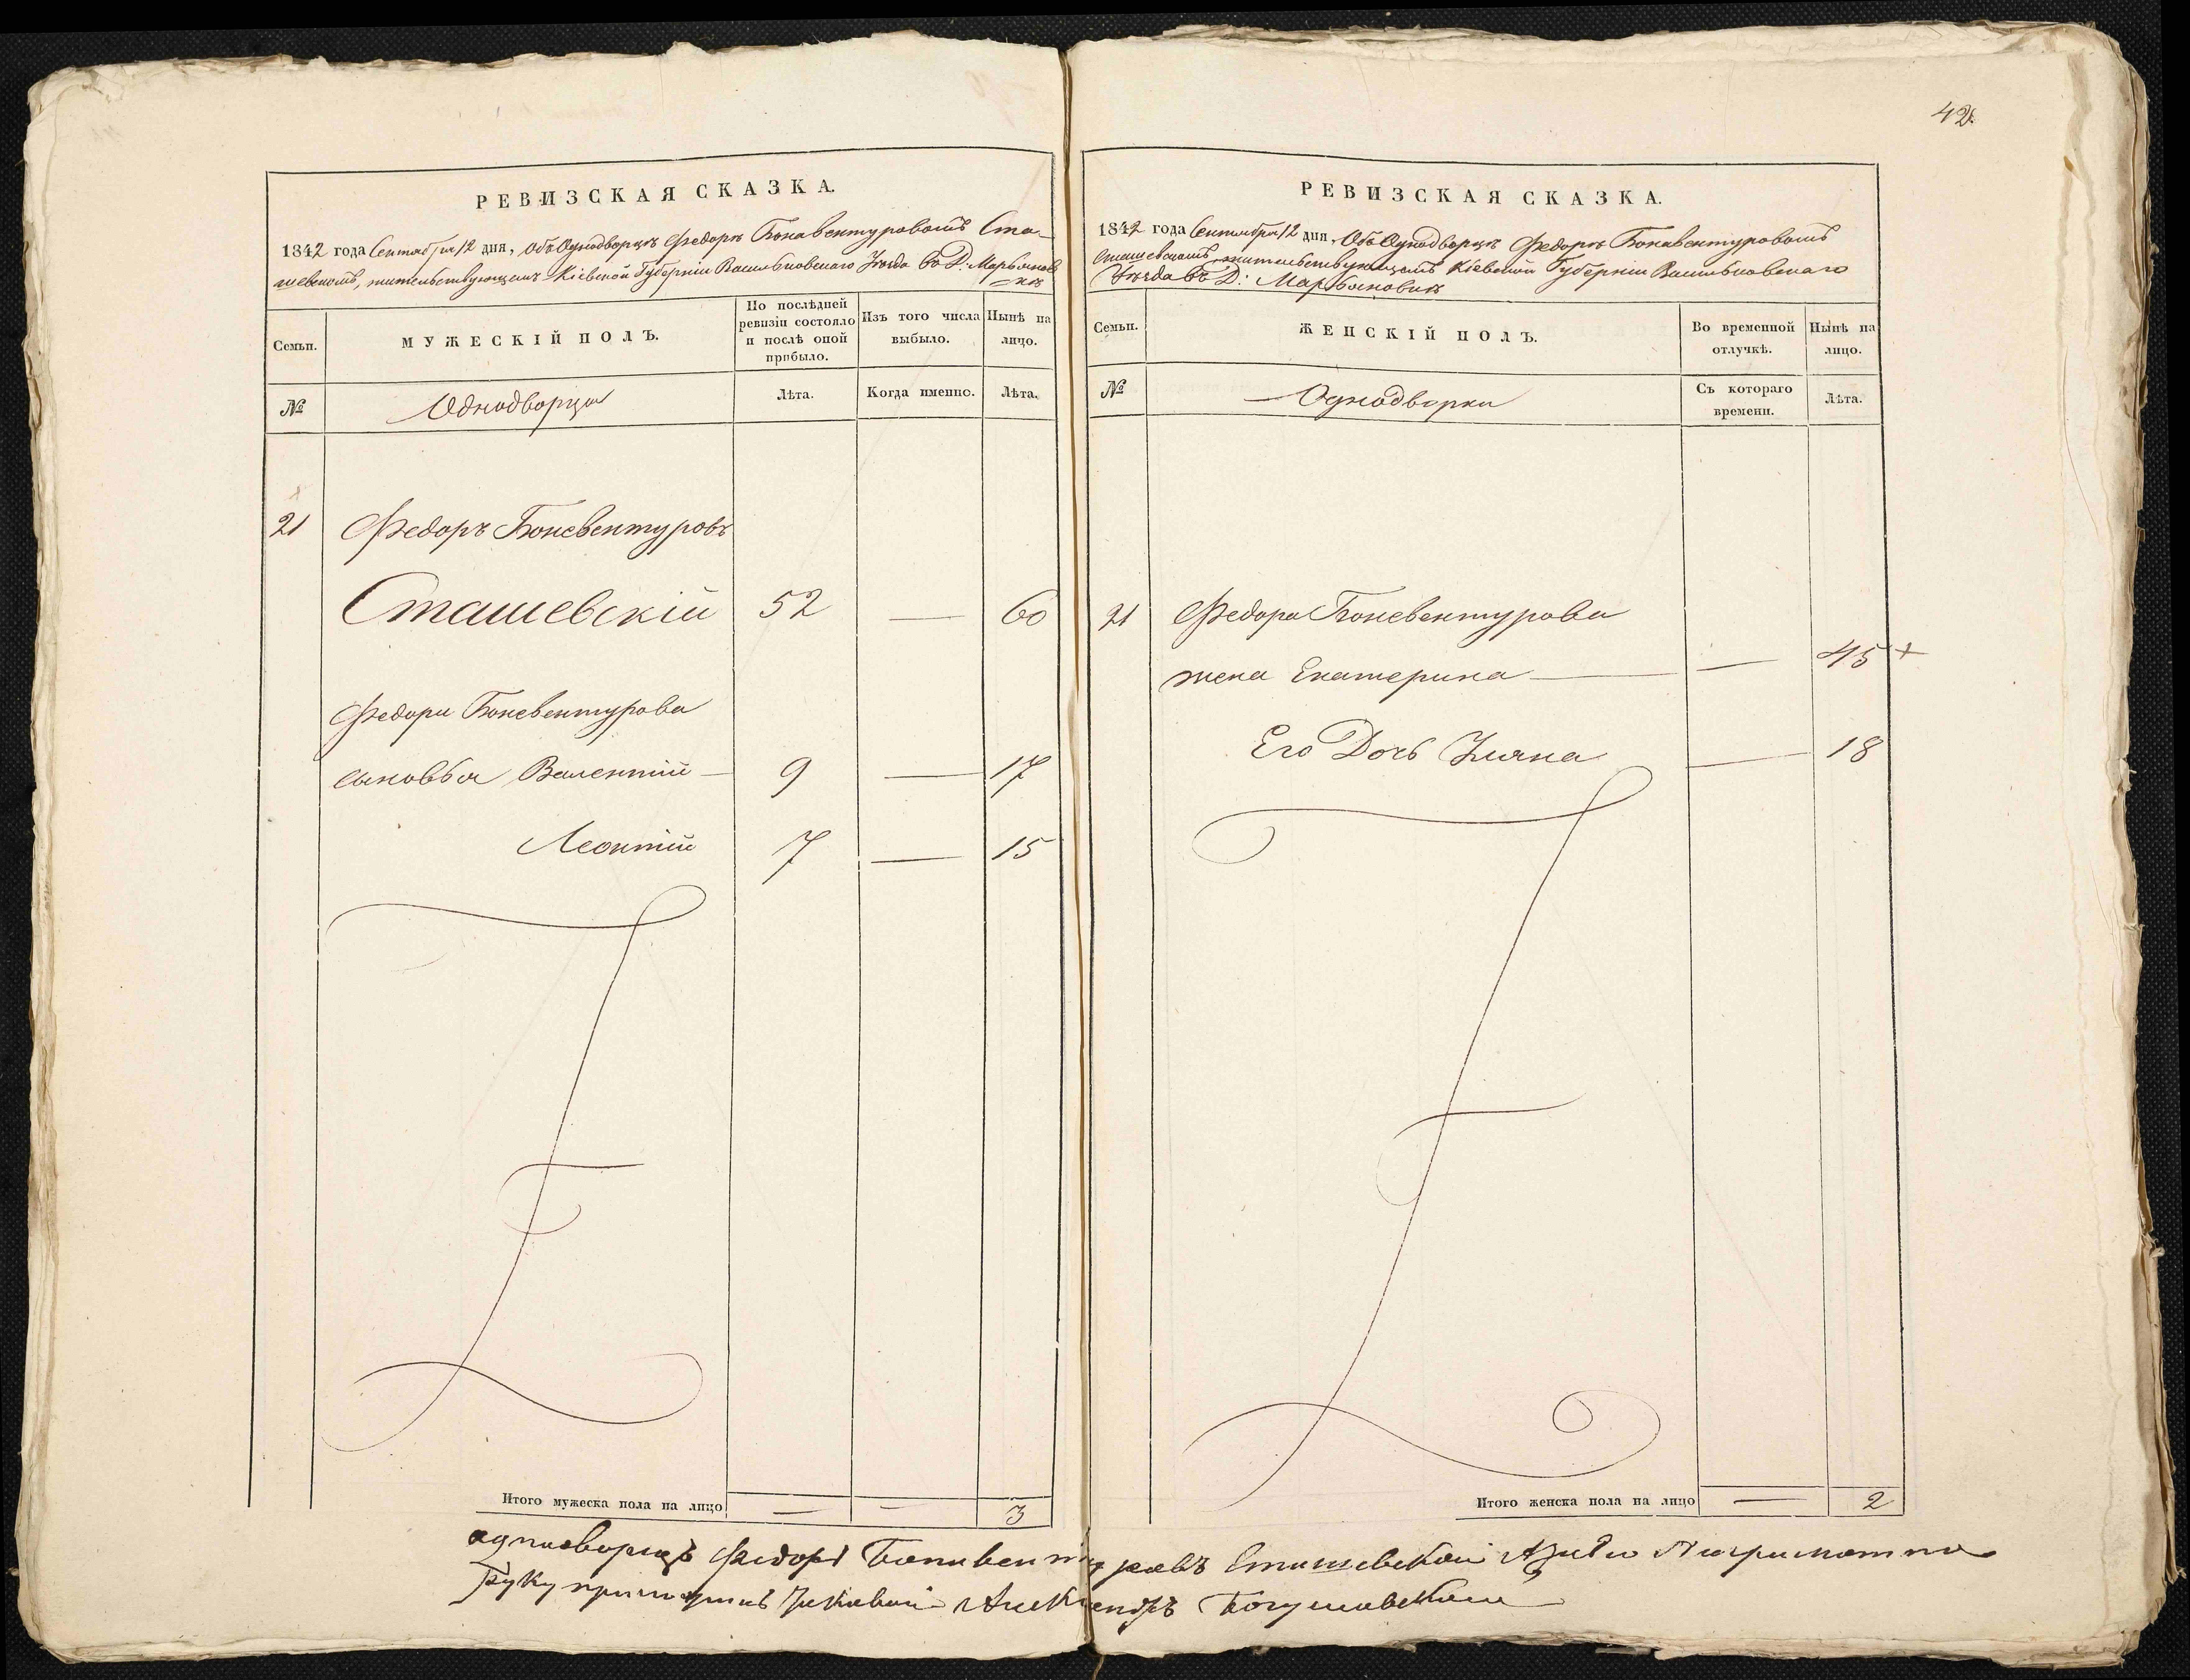 42.
РЕВИЗСКАЯ СКАЗКА.
1842 года Сентября 12 дня, Объ Однодворцѣ Федорѣ Бонавентуровомъ Ста-
шевскомъ, жительствующемъ Кіевской Губерніи Васильковскаго Уѣзда въ Д: Марьянов-
кѣ
Семьи.
МУЖЕСКІЙ ПОЛЪ.
По послѣдней ревизіи состояло и послѣ оной прибыло.
Изъ того числа выбыло.
Нынѣ на лицо.
№
Однодворцы
Лѣта.
Когда именно.
Лѣта.
21 Федоръ Боневентуровъ
Сташевскій 52 — 60
Федора Боневентурова
сыновья Валентій — 9 — 17
Леонтій 7 — 15
Итого мужеска пола на лицо — — 3
РЕВИЗСКАЯ СКАЗКА.
1842 года Сентября 12 дня, Объ Однодворцѣ Федорѣ Бонавентуровомъ
Сташевскомъ, жительствующемъ Кіевской Губерніи Васильковскаго
Уѣзда въ Д: Марьяновкѣ
Семьи.
ЖЕНСКІЙ ПОЛЪ.
Во временной отлучкѣ.
Нынѣ на лицо.
№
Однодворки
Съ котораго времени.
Лѣта.
21 Федора Боневентурова
жена Екатерина — — 45 +
Его Дочь Уляна — 18
Итого женска пола на лицо — 2
однодворецъ Федоръ Бонивентуровъ Сташевской а за его
руку приложилъ Александръ